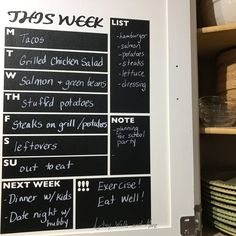 THIS WEEK
M
Tacos
T
Grilled Chicken Salad
W
Salmon + green beans
TH
Stuffed potatoes
F
Steaks on grill /potatoes
S
leftovers
SU
out to eat
LIST
-hamburger
-salmon
-potatoes
-steaks
-lettuce
-dressing
NOTE
-planning
for school
party
NEXT WEEK
- Dinner w/ kids
- Date night w/
hubby
!!!
Exercise!
Eat Well!